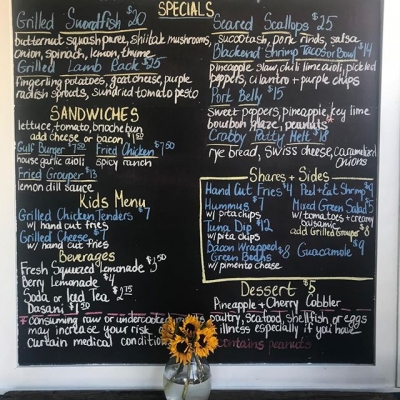 SPECIALS
Grilled Swordfish $20
butternut squash puree, shiitake mushrooms,
onion, spinach, lemon, thyme
Grilled Lamb Rack $25
fingerling potatoes, goat cheese, purple
radish sprouts, sundried tomato pesto
SANDWICHES
lettuce, tomato, brioche bun
add cheese or bacon $1.50
Gulf Burger $7.50 Fried Chicken $7.50
house garlic aioli spicy ranch
Fried Grouper $13
lemon dill sauce
Kids Menu
Grilled Chicken Tenders $7
w/ hand cut fries
Grilled Cheese $7
w/ hand cut fries
Beverages
Fresh Squeezed Lemonade $3.50
Berry Lemonade $4
Soda or Iced Tea $2.75
Dasani $1.50
Seared Scallops $25
succotash, pork rinds, salsa
Blackened Shrimp Tacos or Bowl $14
pineapple slaw, chili lime aioli, pickled
peppers, cilantro + purple chips
Pork Belly $15
sweet peppers, pineapple, key lime
bourbon glaze, peanuts*
Crabby Patty Melt $18
rye bread, swiss cheese, caramelized
onions
Shares + Sides
Hand Cut Fries $4
Hummus $7
w/ pita chips
Tuna Dip $12
w/ pita chips
Bacon Wrapped $8
Green Beans
w/ pimento cheese
Peel + Eat Shrimp $9
Mixed Green Salad $5
w/ tomatoes + creamy
balsamic
add Grilled Grouper $8
Guacamole $9
Dessert $5
Pineapple + Cherry Cobbler
* consuming raw or undercooked meats, poultry, seafood, shellfish or eggs
may increase your risk illness especially if you have
certain medical conditions
contains peanuts